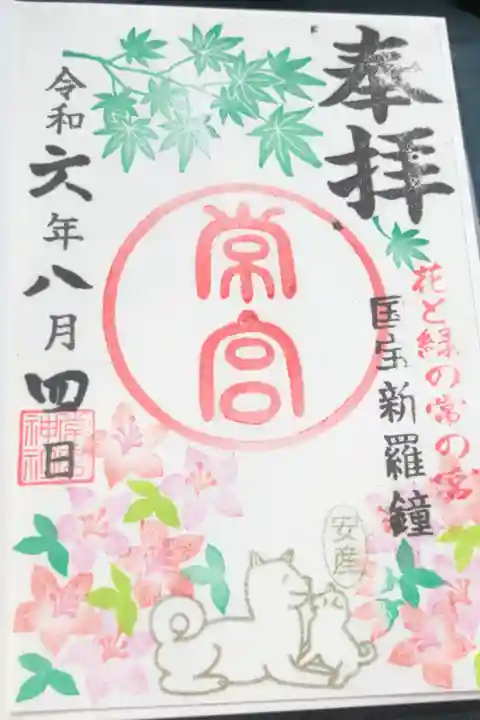 奉拝
花と緑の常の宮
国宝新羅鐘
常宮
安産
令和六年八月四日
常宮
神社